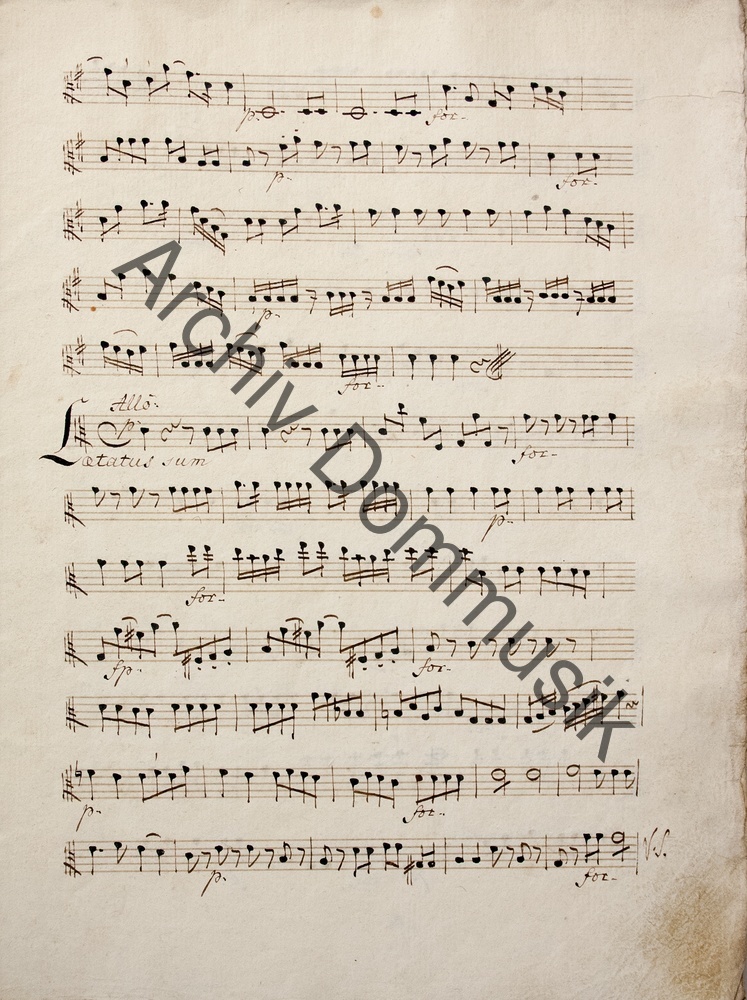 p. for.
p. for.
p.
for.
Allo:
p.
Lætatus sum
for.
p.
for.
fp. for.
p. for.
V.S.
p. for.
Archiv Dommusik